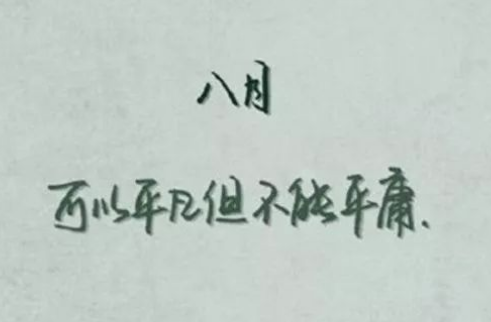 八月
可以平凡但不能平庸.